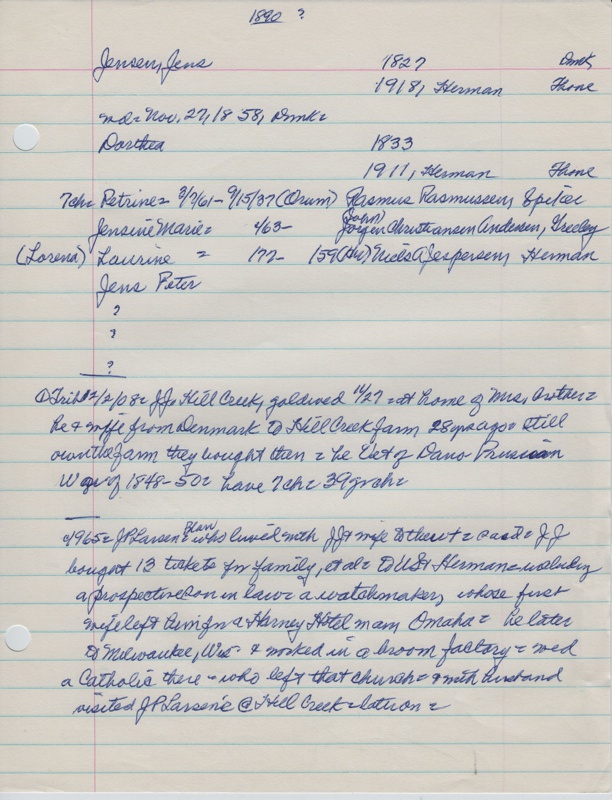 1890 ?
Jensen, Jens 1827 Dmk
1918, Herman Thone
md = Nov. 27, 1858, Dmk =
Dorthea 1833
1911, Herman Thone
7ch = Petrine = 3/7/61 - 9/15/37 (Orum) Rasmus Rasmussen, Spiker
Jensine Marie = 463 - (John) Jorgen Christiansen Andersen, Greeley
(Lorena) Laurine = 172 - 159 (Hu) Niels A. Jespersen, Herman
Jens Peter
?
?
?
① Trib 12/2/08 = JJ, Hill Creek, goldwed 11/27 = at home of Mrs. =
he & wife from Denmark to Hill Creek farm 28 yrs ago = still
own the farm they bought then = he Vet of Dano Prussian
War of 1848-50 = have 7ch = 39 grch =
1965 = JP Larsen = Blair who lived with JJ & wife = said = JJ
bought 13 tickets for family, et al = to US & Herman = including
a prospective son in law = a watchmaker, whose first
wife left him for a Harney Hotel man, Omaha = he later
to Milwaukee, Wis = & worked in a broom factory = wed
a Catholic there - who left that church = & with husband
visited JP Larsens @ Hill Creek = later on =